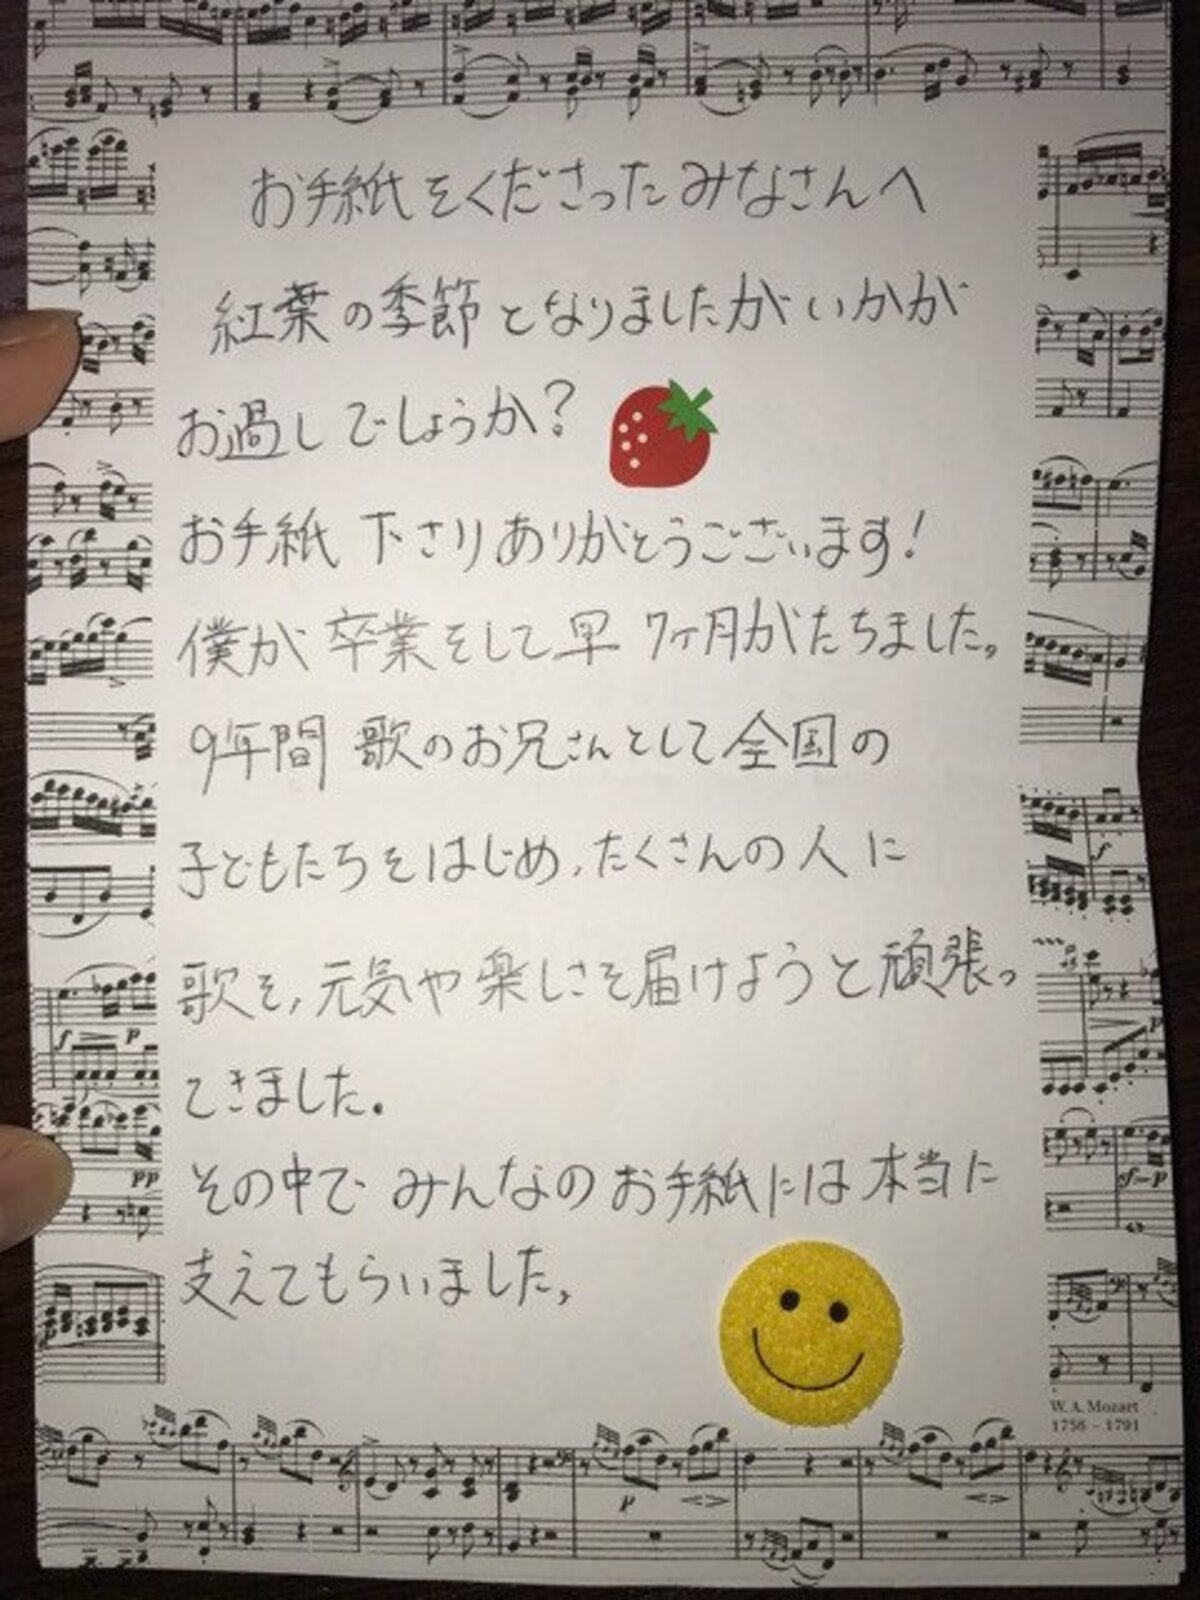 お手紙をくださったみなさんへ
紅葉の季節となりましたがいかが
お過しでしょうか?
お手紙下さりありがとうございます!
僕が卒業をして早7ヶ月がたちました。
9年間歌のお兄さんとして全国の
子どもたちをはじめ、たくさんの人に
歌を、元気や楽しさを届けようと頑張っ
てきました.
その中でみんなのお手紙には本当に
支えてもらいました。
W. A. Mozart
1756 – 1791
f
p
pp
f
p
sf-p
p